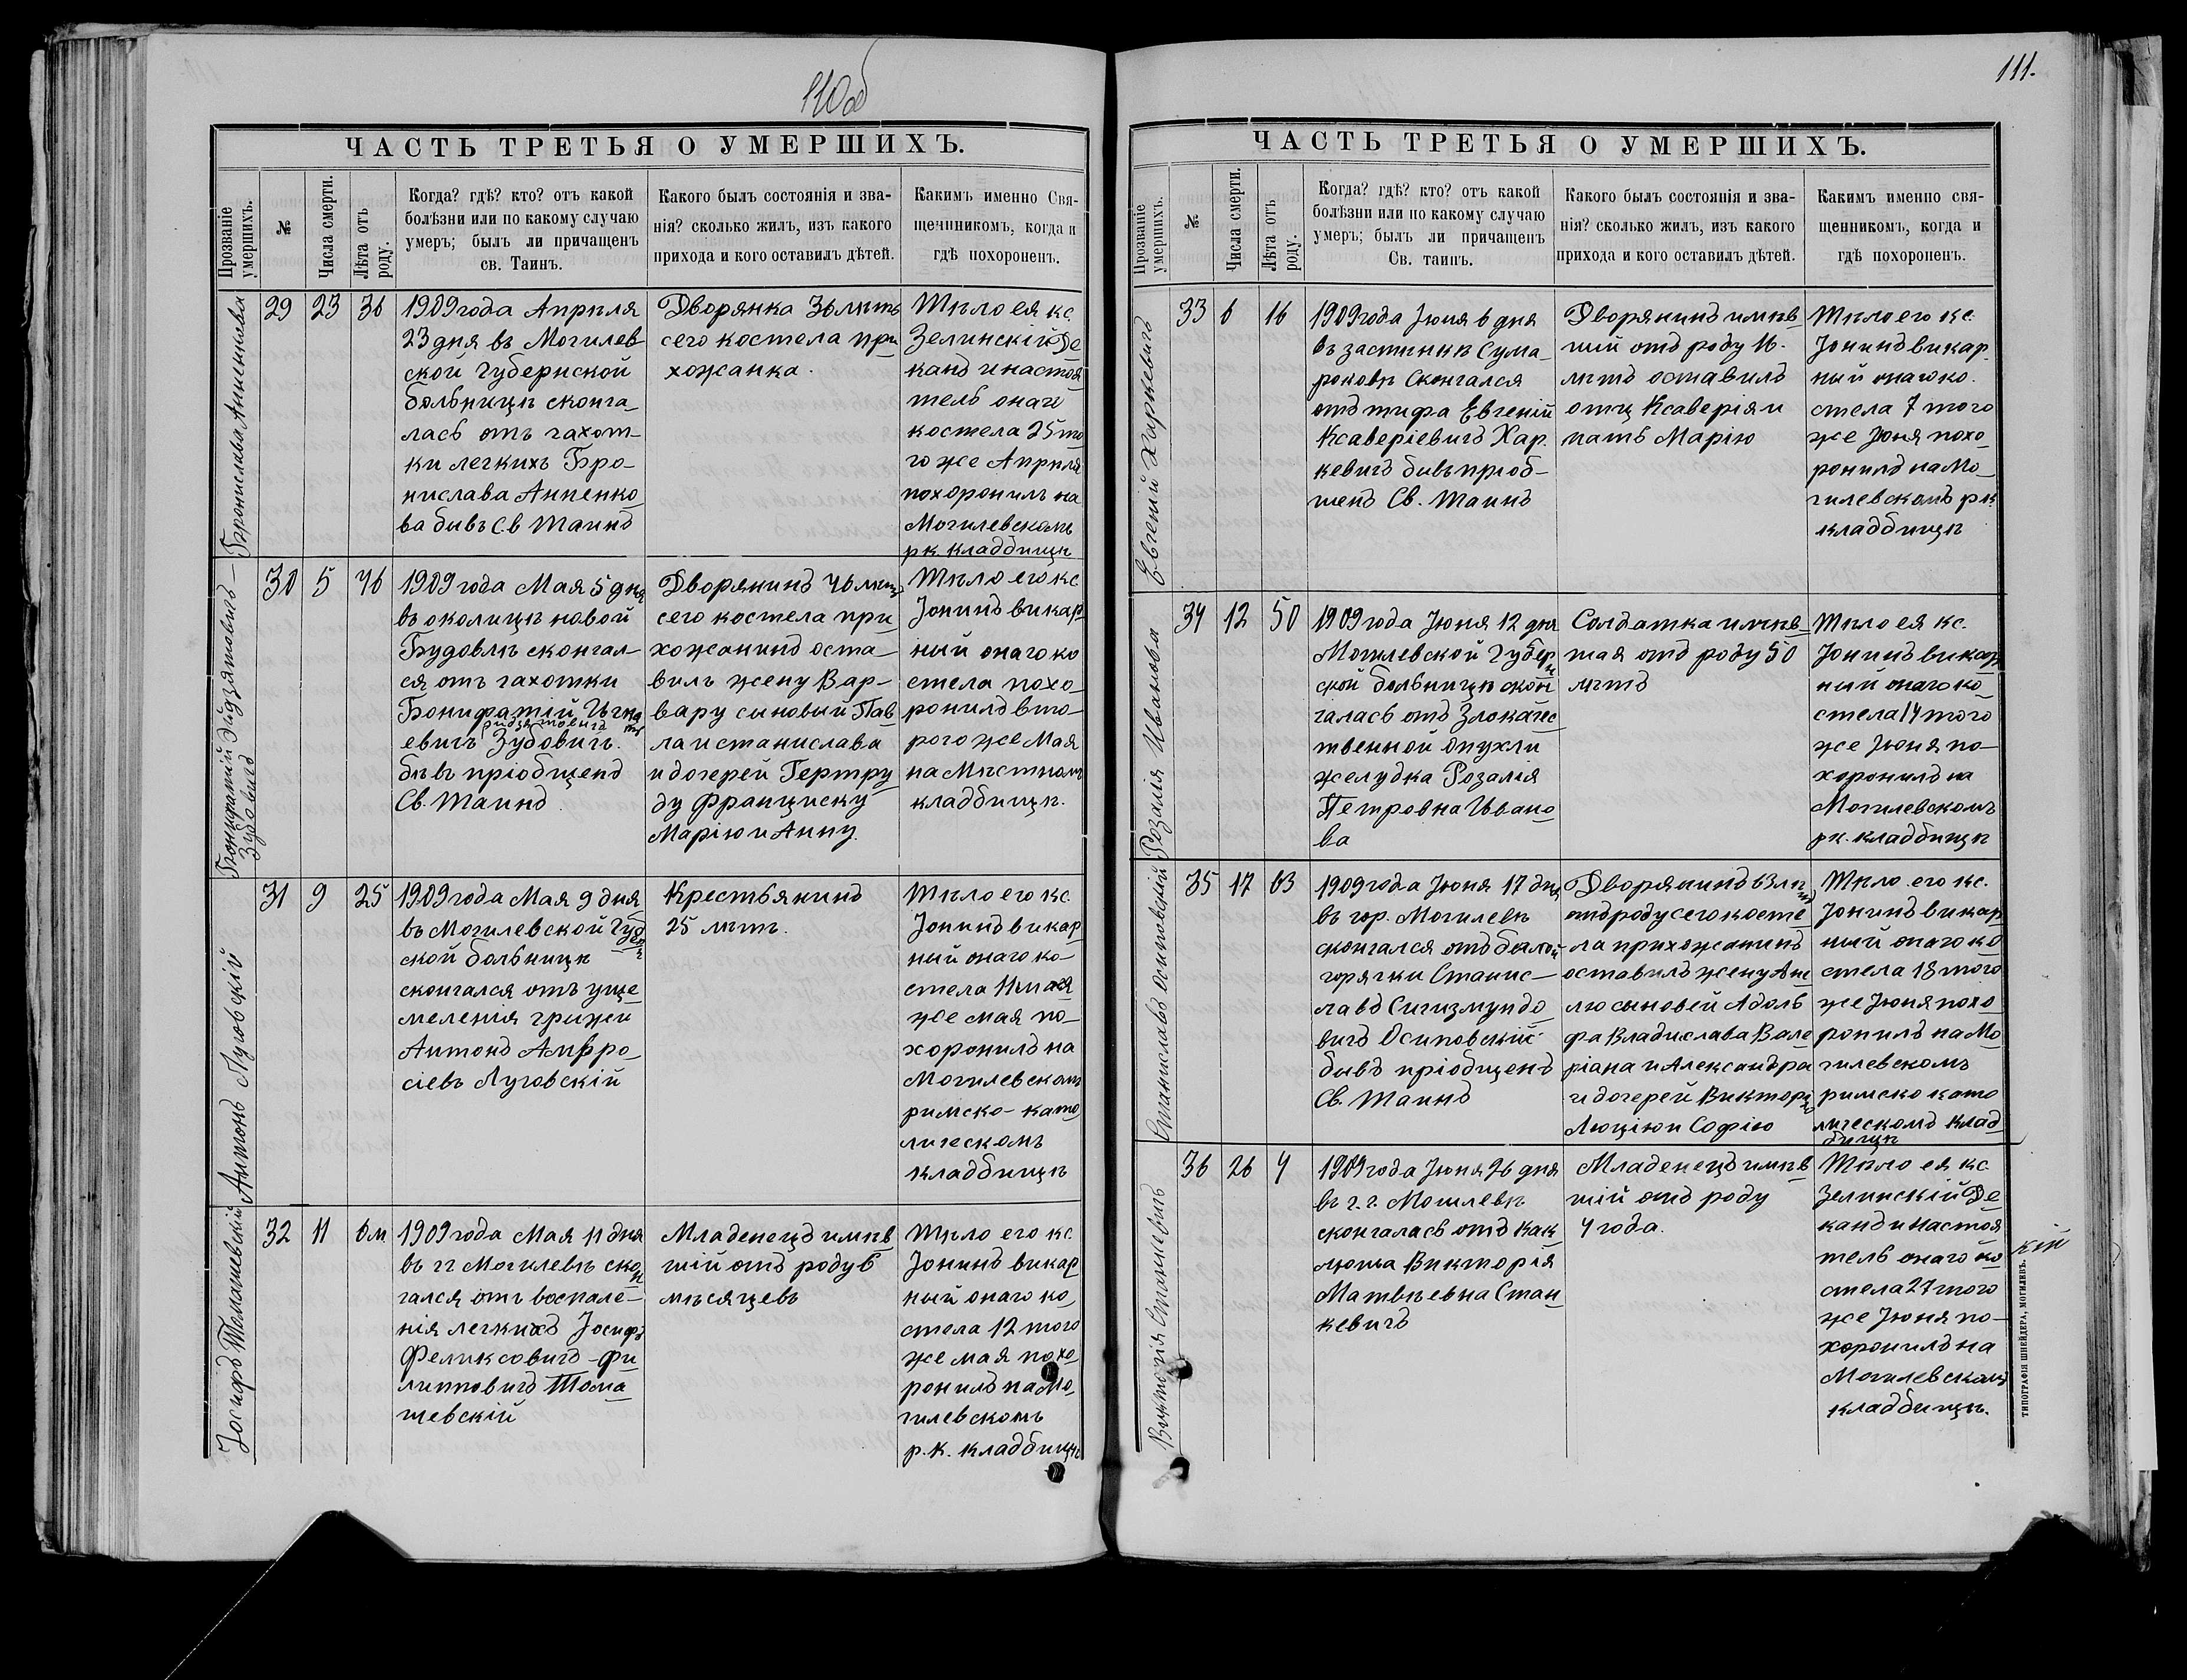 110об
ЧАСТЬ ТРЕТЬЯ О УМЕРШИХЪ.
Прозваніе умершихъ.
№
Числа смерти.
Лѣта отъ роду.
Когда? гдѣ? кто? отъ какой
болѣзни или по какому случаю
умеръ; былъ ли причащенъ
св. Таинъ.
Какого былъ состоянія и зва-
нія? сколько жилъ, изъ какого
прихода и кого оставилъ дѣтей.
Какимъ именно Свя-
щеннникомъ, когда и
гдѣ похороненъ.
Бронислава Анненкова
29
23
36
1909 года Апрѣля
23 дня въ Могилев
ской Губернской
больницѣ сконча_
лась отъ чахот-
ки легкихъ Бро-
нислава Анненко_
ва бывъ Св Таинъ
Дворянка 36 лѣтъ
сего костела при
хожанка.
Тѣло ея кс.
Зелинскій Де
канъ и настоя
тель онаго
костела 25 то
го же Апрѣля
похоронилъ на
Могилевскомъ
рк. кладбищѣ
Бонифатій Эйдзятовичъ-
Зубовичъ
30
5
46
1909 года Мая 5 дня
въ околицѣ новой
Будовлѣ скончал-
ся отъ чахотки
Бонифатій Игна
евичъ Зубовичъ.
бывъ пріобщенъ
Св. Таинъ.
Дворянинъ 46 лѣтъ
сего костела при_
хожанинъ оста-
вилъ жену Вар-
вару сыновый Пав
ла и станислава
и дочерей Гертру
ду Франциску
Марію и Анну.
Тѣло его кс
Іонинъ викар
ный онаго ко
стела похо_
ронилъ вто-
рого же Мая
на Мѣстномъ
кладбищѣ.
Антонъ Луговскій
31
9
25
1909 года Мая 9 дня
въ Могилевской Губер
ской больницѣ
скончался отъ уще_
мленія грыжи
Антонъ Амвро_
сіевъ Луговскій
Крестьянинъ
25 лѣтъ.
Тѣло его кс.
Іонинъ викар
ный онаго ко-
стела 11 мая
же мая по-
хоронилъ на
Могилевскомъ
римско-като
лическомъ
кладбищѣ
Іосифъ Томашевскій
32
11
6м
1909 года Мая 11 дня
въ гг Могилевѣ скон
чался отъ воспале-
нія легкихъ Іосифъ
Феликсовичъ-Фи
липповичъ Тома_
шевскій
Младенецъ имѣв
шій отъ роду 6
мѣсяцевъ
Тѣло его кс.
Іонинъ викар
ный онаго ко_
стела 12 того
же мая похо_
ронилъ на Мо_
гилевскомъ
р.к. кладбищѣ
111.
ЧАСТЬ ТРЕТЬЯ О УМЕРШИХЪ.
Прозваніе умершихъ.
№
Числа смерти.
Лѣта отъ роду.
Когда? гдѣ? кто? отъ какой
болѣзни или по какому случаю
умеръ; былъ ли причащенъ
Св. таинъ.
Какого былъ состоянія и зва-
нія? сколько жилъ, изъ какого
прихода и кого оставилъ дѣтей.
Какимъ именно свя-
щенникомъ, когда и
гдѣ похороненъ.
Евгеній Харкевичъ
33
6
16
1909 года Іюня 6 дня
въ застѣнкѣ Сума_
роковѣ Скончался
отъ тифа Евгеній
Ксаверіевичъ Хар_
кевичъ бывъ пріоб-
щенъ Св. Таинъ
Дворянинъ имѣв_
шій отъ роду 16.
лѣтъ оставилъ
отц Ксаверія и
мать Марію
Тѣло его кс.
Іонинъ викар_
ный онаго ко.
стела 7 того
же Іюня похо_
ронилъ на Мо_
гилевскомъ рк.
кладбищѣ
Розалія Иванова
34
12
50
1909 года Іюня 12 дня
Могилевской Губерн
ской больницѣ скон
чалась отъ Злокачес
твенной опухли
желудка Розалія
Петровна Ивано_
ва
Солдатка имѣв_
шая отъ роду 50
лѣтъ
Тѣло ея кс.
Іонинъ викар
ный онаго ко_
стела 14 того
же Іюня по-
хоронилъ на
Могилевскомъ
рк. кладбищѣ
Станиславъ Осиповскій
35
17
63
1909 года Іюня 17 дня
въ гор. Могилевѣ
скончался отъ бѣлой
горячки Станис-
лавъ Сигизмундо_
вичъ Осиповскій
бывъ пріобщенъ
Св. Таинъ
Дворянинъ 63 лѣтъ
отъ роду сего косте_
ла прихожанинъ
оставилъ жену Ане
лю сыновей Адоль
фа Владислава Вале
ріана и Александра
и дочерей Викторію
Люцію и Софію
Тѣло его кс.
Іонинъ викар
ный онаго ко
стела 18 того
же Іюня похо_
ронилъ на Мо_
гилевскомъ
римско като
лическомъ клад_
бищѣ
Викторія Станкевичъ
36
26
4
1909 года Іюня 26 дня
въ г.г. Могилевѣ
скончалась отъ как_
люша Викторія
Матвѣевна Стан_
кевичъ
Младенецъ имѣв
шій отъ роду
4 года.
Тѣло ея кс.
Зелинскій Де_
канъ и настоя_
тель онаго ко_
стела 27 того
же Іюня по-
хоронилъ на
Могилевскомъ
кладбищѣ.
ТИПОГРАФІЯ ШНЕЙДЕРА, МОГИЛЕВЪ.